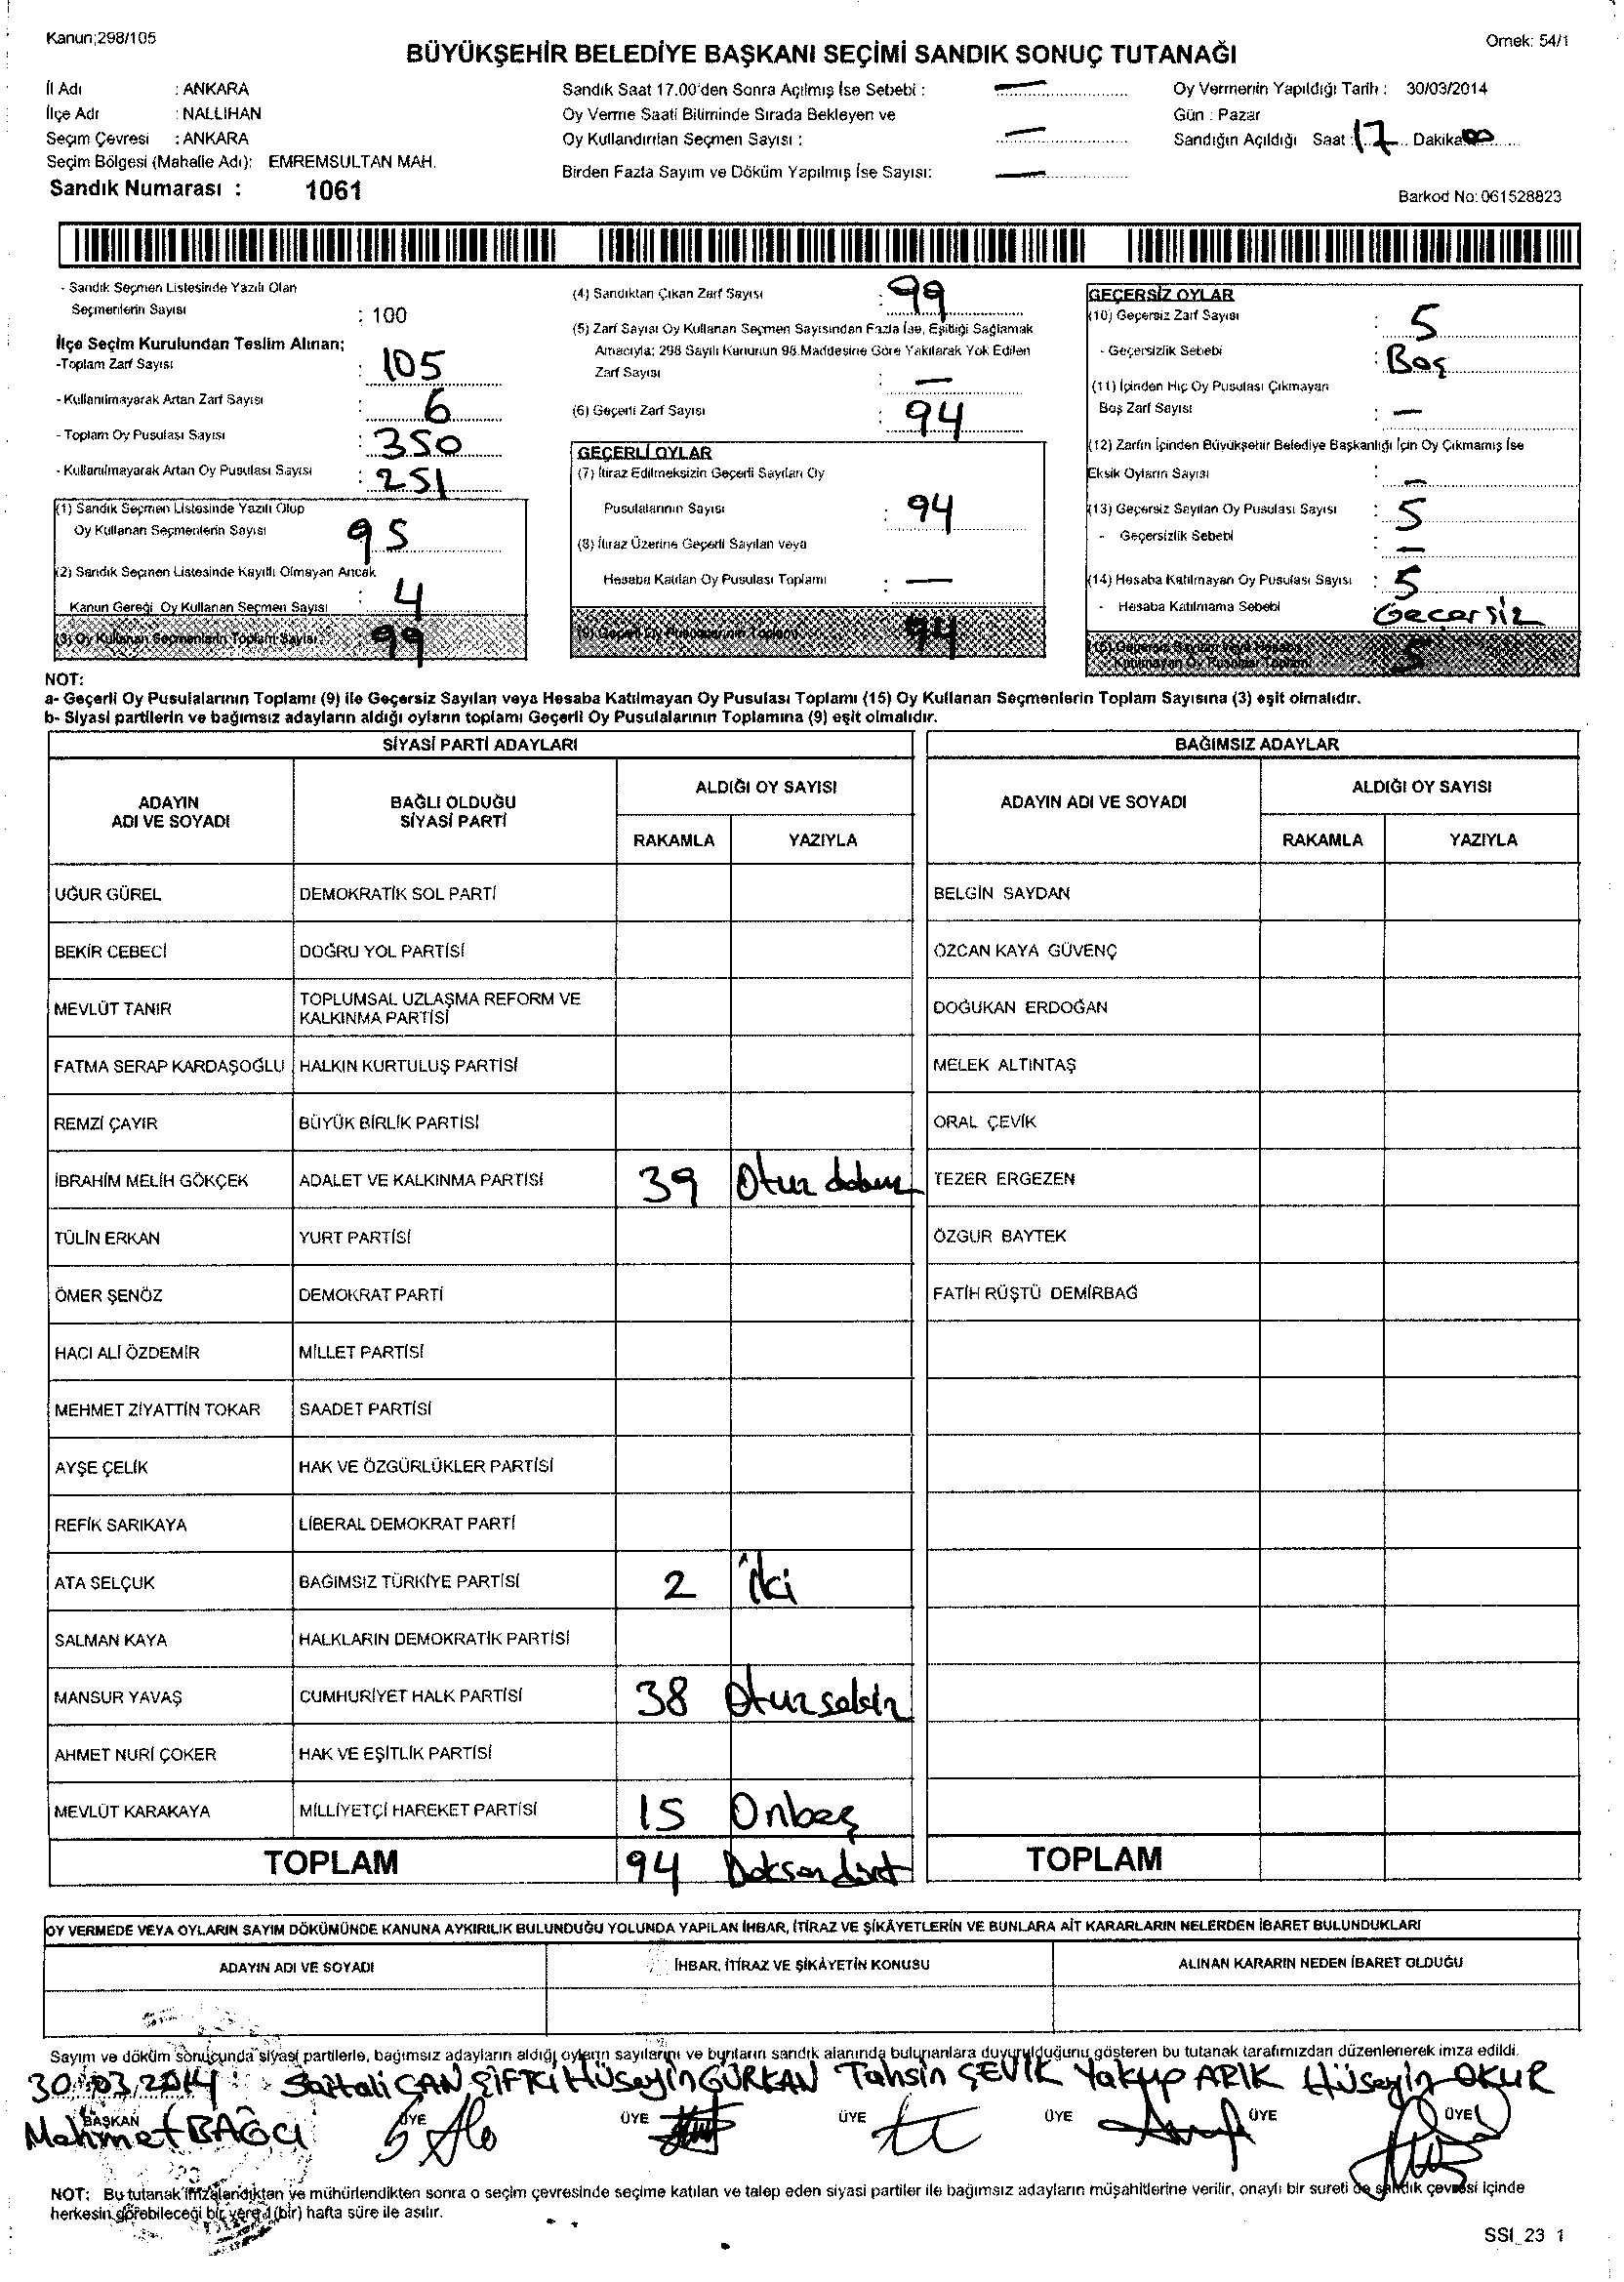 Kanun;298/105
Örnek: 54/1
BÜYÜKŞEHİR BELEDİYE BAŞKANI SEÇİMİ SANDIK SONUÇ TUTANAĞI
İl Adı : ANKARA
İlçe Adı : NALLIHAN
Seçim Çevresi : ANKARA
Seçim Bölgesi (Mahalle Adı): EMREMSULTAN MAH.
Sandık Numarası : 1061
Sandık Saat 17.00'den Sonra Açılmış İse Sebebi : —
Oy Verme Saati Bitiminde Sırada Bekleyen ve
Oy Kullandırılan Seçmen Sayısı : —
Birden Fazla Sayım ve Döküm Yapılmış İse Sayısı: —
Oy Vermenin Yapıldığı Tarih : 30/03/2014
Gün : Pazar
Sandığın Açıldığı Saat : 17 Dakika 00
Barkod No: 061528823
- Sandık Seçmen Listesinde Yazılı Olan
Seçmenlerin Sayısı : 100
İlçe Seçim Kurulundan Teslim Alınan;
-Toplam Zarf Sayısı : 105
- Kullanılmayarak Artan Zarf Sayısı : 6
- Toplam Oy Pusulası Sayısı : 350
- Kullanılmayarak Artan Oy Pusulası Sayısı : 251
(1) Sandık Seçmen Listesinde Yazılı Olup
Oy Kullanan Seçmenlerin Sayısı 95
(2) Sandık Seçmen Listesinde Kayıtlı Olmayan Ancak
Kanun Gereği Oy Kullanan Seçmen Sayısı : 4
(3) Oy Kullanan Seçmenlerin Toplam Sayısı: 99
(4) Sandıktan Çıkan Zarf Sayısı : 99
(5) Zarf Sayısı Oy Kullanan Seçmen Sayısından Fazla İse, Eşitliği Sağlamak
Amacıyla; 298 Sayılı Kanunun 98.Maddesine Göre Yakılarak Yok Edilen
Zarf Sayısı : —
(6) Geçerli Zarf Sayısı : 94
GEÇERLİ OYLAR
(7) İtiraz Edilmeksizin Geçerli Sayılan Oy
Pusulalarının Sayısı : 94
(8) İtiraz Üzerine Geçerli Sayılan veya
Hesaba Katılan Oy Pusulası Toplamı : —
(9) Geçerli Oy Pusulalarının Toplamı 94
GEÇERSİZ OYLAR
(10) Geçersiz Zarf Sayısı : 5
- Geçersizlik Sebebi : Boş
(11) İçinden Hiç Oy Pusulası Çıkmayan
Boş Zarf Sayısı : —
(12) Zarfın İçinden Büyükşehir Belediye Başkanlığı İçin Oy Çıkmamış İse
Eksik Oyların Sayısı : —
(13) Geçersiz Sayılan Oy Pusulası Sayısı : 5
- Geçersizlik Sebebi : —
(14) Hesaba Katılmayan Oy Pusulası Sayısı : 5
- Hesaba Katılmama Sebebi Gecersiz
(15) Geçersiz Sayılan veya Hesaba
Katılmayan Oy Pusulası Toplamı 5
NOT:
a- Geçerli Oy Pusulalarının Toplamı (9) ile Geçersiz Sayılan veya Hesaba Katılmayan Oy Pusulası Toplamı (15) Oy Kullanan Seçmenlerin Toplam Sayısına (3) eşit olmalıdır.
b- Siyasi partilerin ve bağımsız adayların aldığı oyların toplamı Geçerli Oy Pusulalarının Toplamına (9) eşit olmalıdır.
SİYASİ PARTİ ADAYLARI
ADAYIN ADI VE SOYADI BAĞLI OLDUĞU SİYASİ PARTİ ALDIĞI OY SAYISI
RAKAMLA YAZIYLA
UĞUR GÜREL DEMOKRATİK SOL PARTİ
BEKİR CEBECİ DOĞRU YOL PARTİSİ
MEVLÜT TANIR TOPLUMSAL UZLAŞMA REFORM VE KALKINMA PARTİSİ
FATMA SERAP KARDAŞOĞLU HALKIN KURTULUŞ PARTİSİ
REMZİ ÇAYIR BÜYÜK BİRLİK PARTİSİ
İBRAHİM MELİH GÖKÇEK ADALET VE KALKINMA PARTİSİ 39 Otuz dokuz
TÜLİN ERKAN YURT PARTİSİ
ÖMER ŞENÖZ DEMOKRAT PARTİ
HACI ALİ ÖZDEMİR MİLLET PARTİSİ
MEHMET ZİYATTİN TOKAR SAADET PARTİSİ
AYŞE ÇELİK HAK VE ÖZGÜRLÜKLER PARTİSİ
REFİK SARIKAYA LİBERAL DEMOKRAT PARTİ
ATA SELÇUK BAĞIMSIZ TÜRKİYE PARTİSİ 2 İki
SALMAN KAYA HALKLARIN DEMOKRATİK PARTİSİ
MANSUR YAVAŞ CUMHURİYET HALK PARTİSİ 38 Otuzsekiz
AHMET NURİ ÇOKER HAK VE EŞİTLİK PARTİSİ
MEVLÜT KARAKAYA MİLLİYETÇİ HAREKET PARTİSİ 15 Onbeş
TOPLAM 94 Doksan dört
BAĞIMSIZ ADAYLAR
ADAYIN ADI VE SOYADI ALDIĞI OY SAYISI
RAKAMLA YAZIYLA
BELGİN SAYDAN
ÖZCAN KAYA GÜVENÇ
DOĞUKAN ERDOĞAN
MELEK ALTINTAŞ
ORAL ÇEVİK
TEZER ERGEZEN
ÖZGÜR BAYTEK
FATİH RÜŞTÜ DEMİRBAĞ
TOPLAM
OY VERMEDE VEYA OYLARIN SAYIM DÖKÜMÜNDE KANUNA AYKIRILIK BULUNDUĞU YOLUNDA YAPILAN İHBAR, İTİRAZ VE ŞİKÂYETLERİN VE BUNLARA AİT KARARLARIN NELERDEN İBARET BULUNDUKLARI
ADAYIN ADI VE SOYADI İHBAR, İTİRAZ VE ŞİKÂYETİN KONUSU ALINAN KARARIN NEDEN İBARET OLDUĞU
Sayım ve döküm sonucunda siyasi partilerle, bağımsız adayların aldığı oyların sayılarını ve bunların sandık alanında bulunanlara duyurulduğunu gösteren bu tutanak tarafımızdan düzenlenerek imza edildi.
30.03.2014 ÇİFTCİ Hüseyin GÜRKAN Tahsin ÇEVİK Yakup ARIK Hüseyin OKUR
BAŞKAN ÜYE ÜYE ÜYE ÜYE ÜYE ÜYE
Mehmet BAĞCI
NOT: Bu tutanak imzalandıktan ve mühürlendikten sonra o seçim çevresinde seçime katılan ve talep eden siyasi partiler ile bağımsız adayların müşahitlerine verilir, onaylı bir sureti de sandık çevresi içinde
herkesin görebileceği bir yere 1 (bir) hafta süre ile asılır.
SSI_23 1